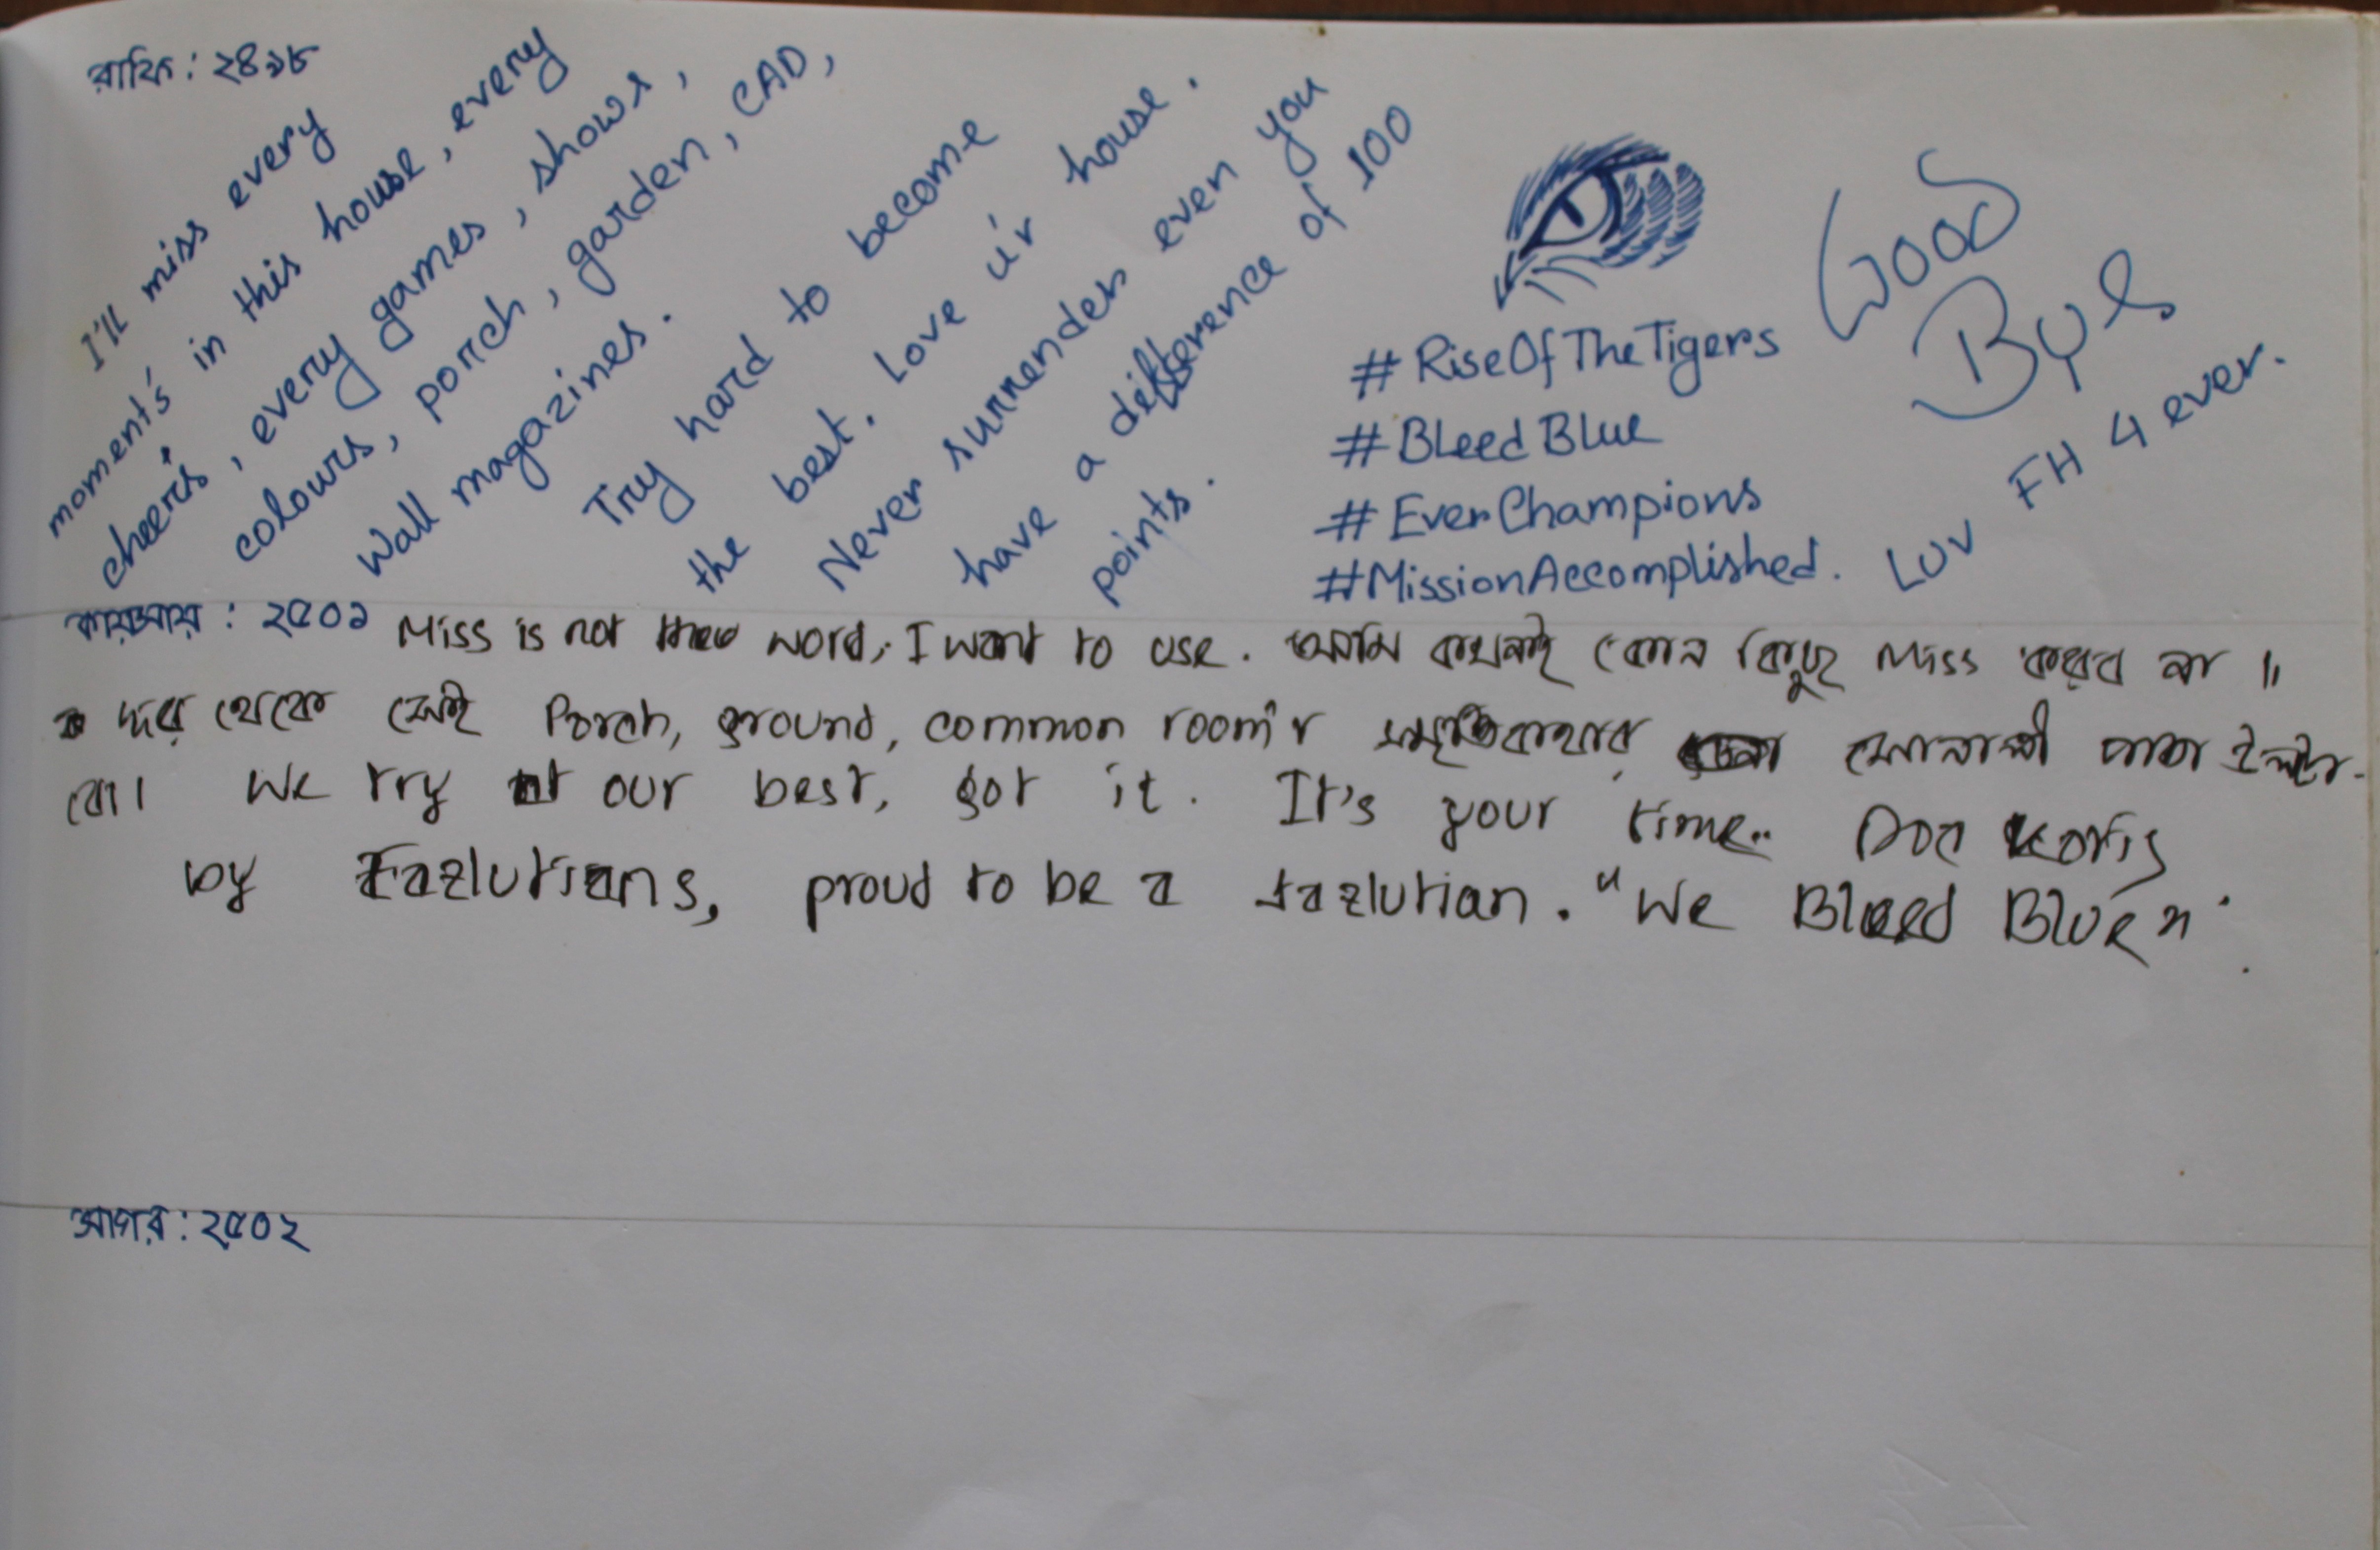 রাফি : ২৪৯৮
I'll miss every
moment's in this house, every
cheers, every games, shows,
colours, porch, garden, CAD,
Wall magazines.
Try hard to become
the best. Love u'r house.
Never surrender even you
have a difference of 100
points.
#RiseOfTheTigers
#BleedBlue
#EverChampions
#MissionAccomplished.
Good
Bye
Luv FH 4 ever.
: ২৫০১ Miss is not the word, I want to use. আমি কখনই কোন কিছুই Miss করব না ॥
দূর থেকে সেই Porch, ground, common room'র সোনালী পাতা উল্টা-
বো। We try our best, got it. It's your time..
by Fazlutians, proud to be a fazlutian. "We Bleed Blue".
আগর : ২৫০২